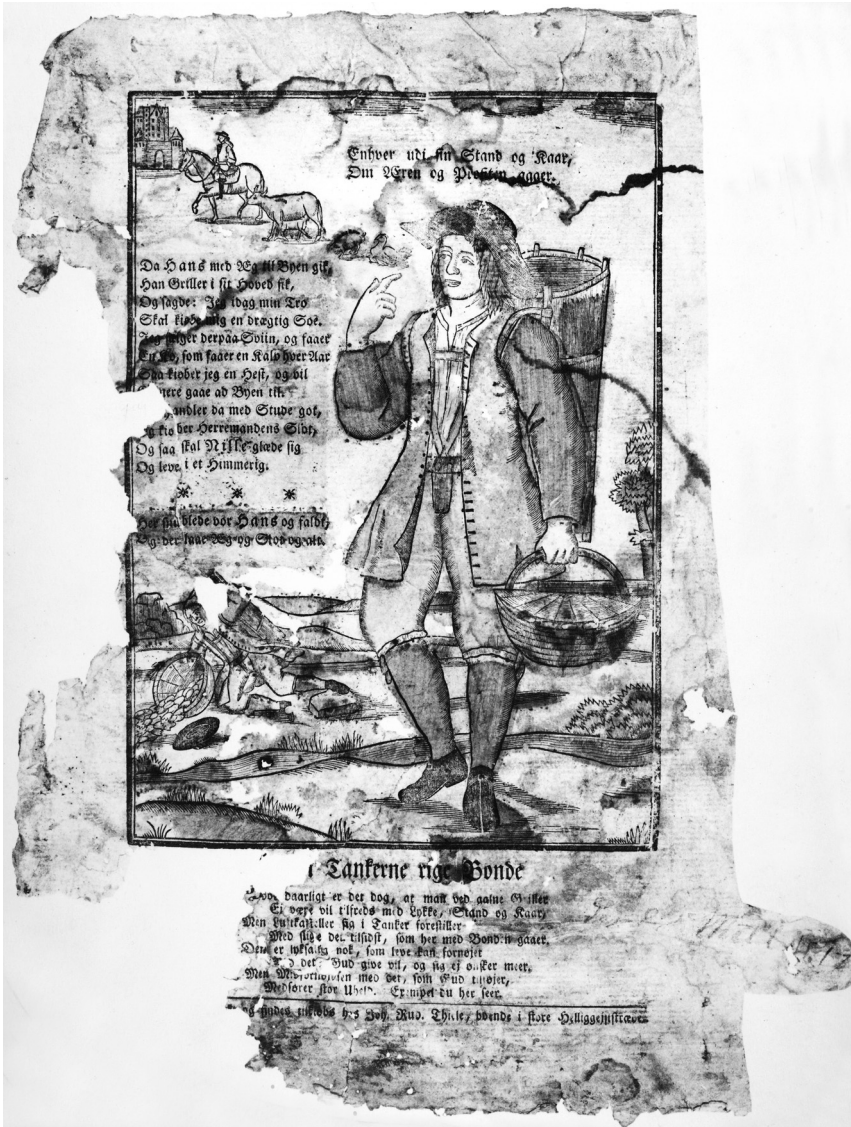 Enhver udi sin Stand og Kaar,
Om Æren og Profiten gaaer.
Da Hans med Æg til Byen gik,
Han Griller i sit Hoved fik,
Og sagde: Jeg idag min Tro
Skal kiøbe mig en drægtig Soe.
Jeg sælger derpaa Sviin, og faaer
En Ko, som faaer en Kalv hver Aar
Saa kiøber jeg en Hest, og vil
gaae ad Byen til.
handler da med Stude got,
kiøber Herremandens Slot,
Og saa skal Nille glæde sig
Og leve i et Himmerig.
Her snublede vor Hans og faldt,
Og der laae Æg og
Tankerne rige Bonde
daarligt er det dog, at man ved galne Griller
Ei være vil tilfreds med Lykke, Stand og Kaar,
Men Luftkasteller sig i Tanker forestiller
Med slige det tilsidst, som her med Bonden gaaer.
Den er lyksalig nok, som leve kan fornøjet
det Gud give vil, og sig ej ønsker meer,
Men Misfornøjelsen med det, som Gud tilføjer,
Medfører stor Uheld. Exempel du her seer.
findes tilkiøbs hos Joh. Rud. Thiele, boende i store Helliggeiststræde